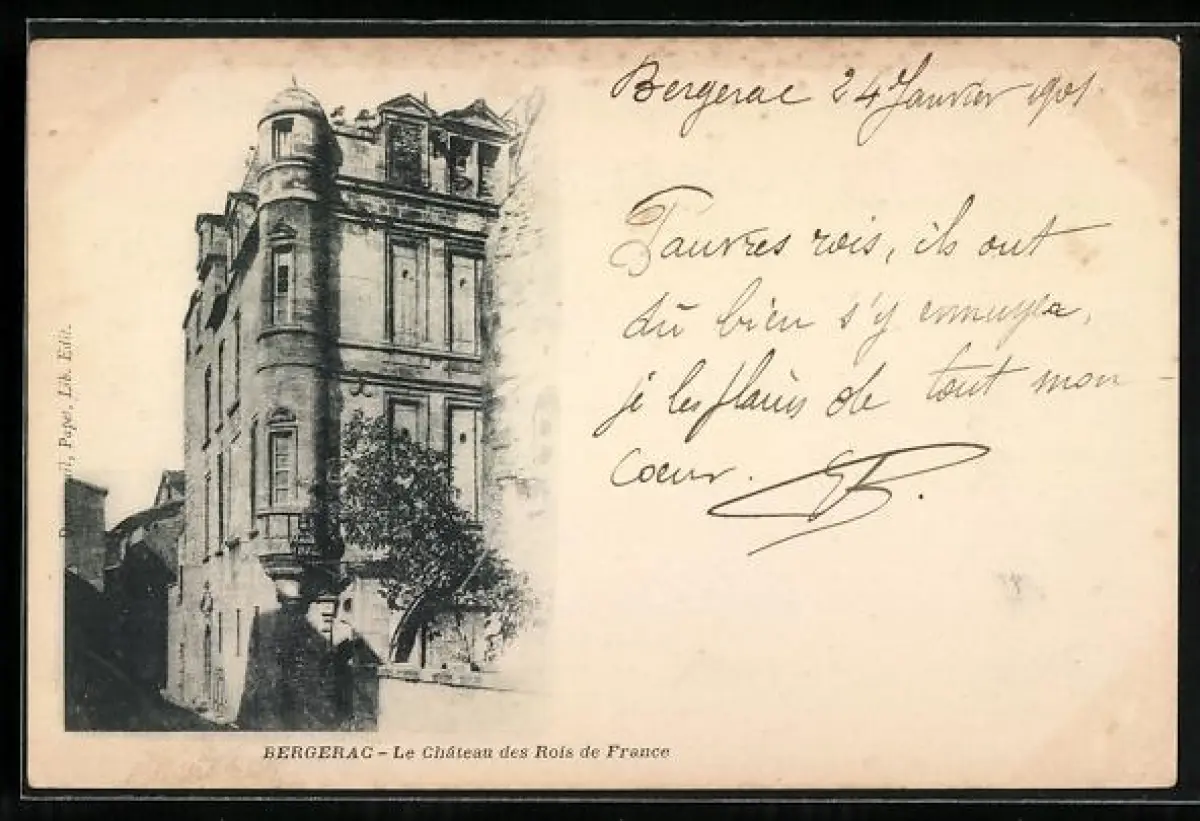 Bergerac 24 Janvier 1901.
Pauvres rois, ils ont
dû bien s'y ennuyer,
je les plains de tout mon
coeur.
Pape. Lib. Edit.
BERGERAC – Le Château des Rois de France